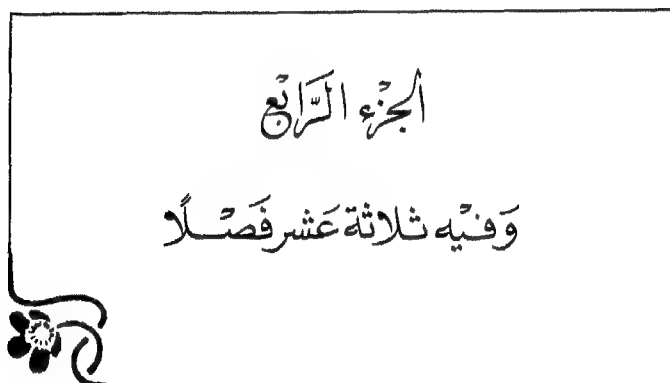 الجزء الرَّابع
وَفيه ثلاثة عَشر فَصْلًا